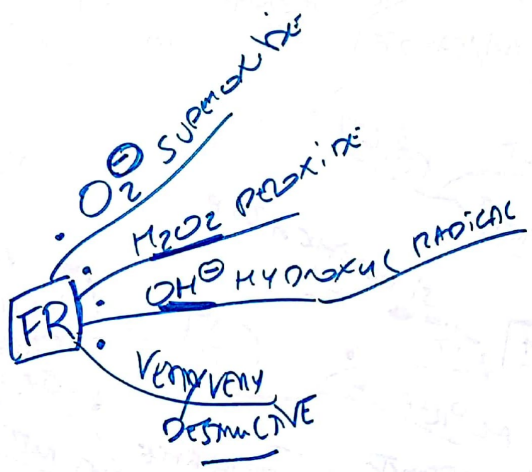 O2⊖ SUPEROXIDE
H2O2 PEROXIDE
OH⊖ HYDROXYL RADICAL
FR
VERY VERY
DESTRUCTIVE